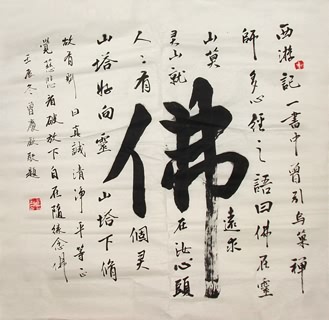 西游記一書中曾引烏巢禪
師多心經之語曰佛在靈
山莫遠求
佛
灵山就在汝心頭
人人有個灵
山塔好向靈山塔下脩
故有曰真誠清淨平等正
覺慈悲看破放下自在隨緣念佛
冬曾慶題